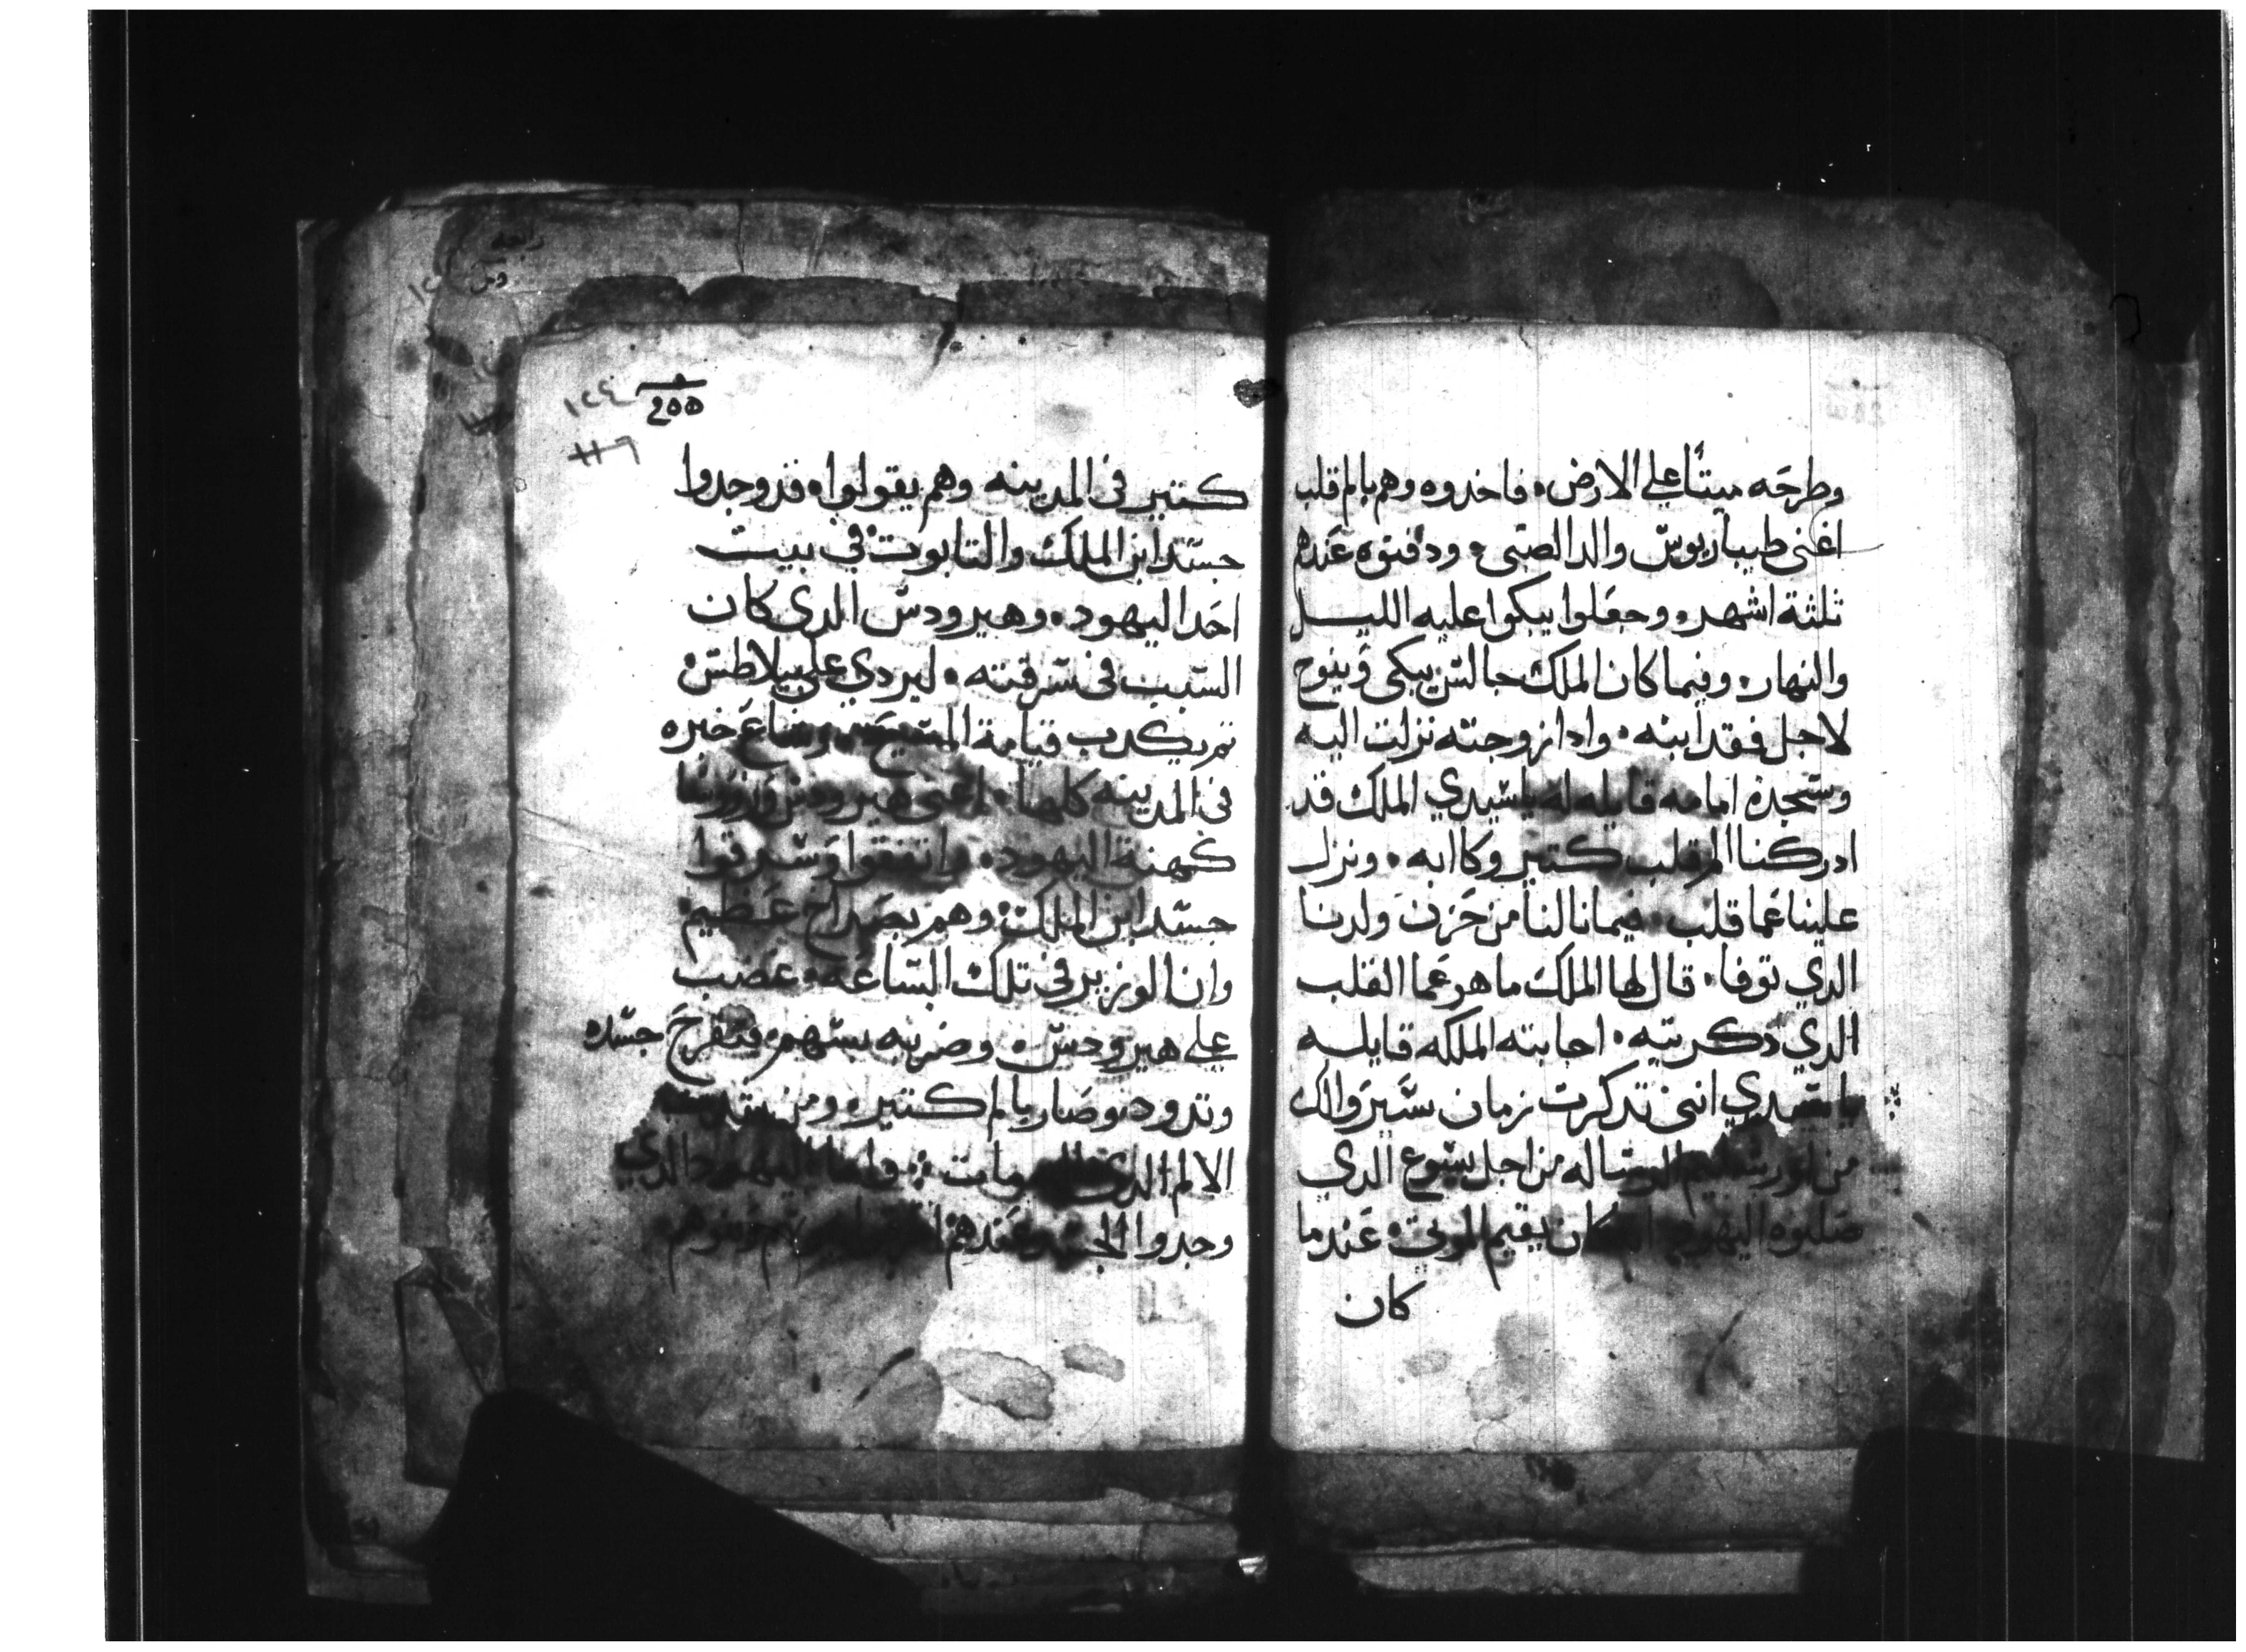 وطرحَه ميتًا علي الارض. فاخدوه وهم بالم قلب
اعني طيباريوس والد الصبي. ودفنوه عندهم
ثلثة اشهر. وجعلوا يبكوا عليه الليل
والنهار. وفيما كان الملك جالس يبكي وينوح
لاجل فقد ابنه. وادا زوجته نزلت اليه
وسجدة امامه قايله له ياسيدي الملك قد
ادركنا الم قلب كتير وكاابه. ونزل
علينا عما قلب. فيما نالنا من حزن ولدنا
الدي توفا. قال لها الملك ما هو عما القلب
الدي ذكرتيه. اجابته الملكه قايله
يا سيدي انني تدكرت زمان سير والك
من اورشليم الرساله من اجل يسوع الدي
صلبوه اليهود كان يقيم الموتي. عندما
كان
١٢٤
١١٦
كتير في المدينه وهم يقولوا. قد وجدوا
جسد ابن الملك والتابوت في بيت
احد اليهود. وهيرودس الدي كان
السبب في سرقته. ليردي علي بيلاطس
تم يكدب قيامة المسيح وشاع خبره
في المدينه كلها. اعني هيرودس
كهنة اليهود. واتفقوا وسرقوا
جسد ابن الملك. وهم بصراخ عظيم
وان الوزير في تلك الساعه. غضب
علي هيرودس. وضربه بسهم. فتفرح جسده
وتدود وصار بالم كتير. ومن
الالم الدي ومات. واما اليهود الدي
وجدوا الجسد عندهم